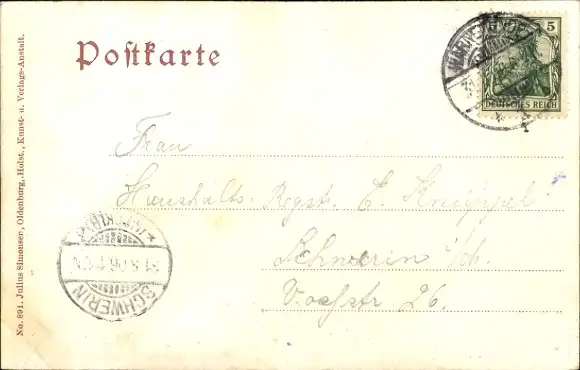 Postkarte
5
DEUTSCHES REICH
Frau
Haushalts. Regstr. E. Knüppel
Schwerin i/M.
SCHWERIN
31.8.06
No. 891. Julius Simonsen, Oldenburg, Holst., Kunst- u. Verlags-Anstalt.